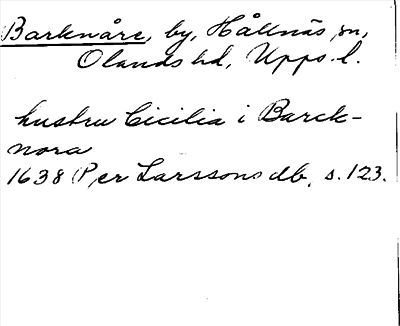 Barknåre, by, Hållnäs sn,
Olands hd, Upps. l.
hustru Cicilia i Barck-
nora
1638 (Per Larssons db, s. 123.